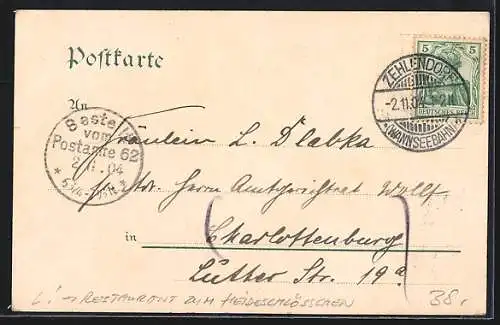 Postkarte
5
DEUTSCHES REICH
ZEHLENDORF
-2.11.04
(WANNSEEBAHN)
An
Bestellt
vom
Postamte 62
2.11.04
Fräulein L. Dlabka
Adr. Herrn Amtsgerichtsrat Wolff
in Charlottenburg
Luther Str. 19a
L! → RESTAURANT ZUM HEIDESCHLÖSSCHEN
38.